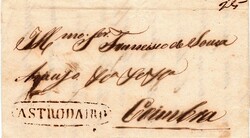 25
Ill.mo Snr. Francisco de Souza
Araujo
CASTRODAIRO
Coimbra